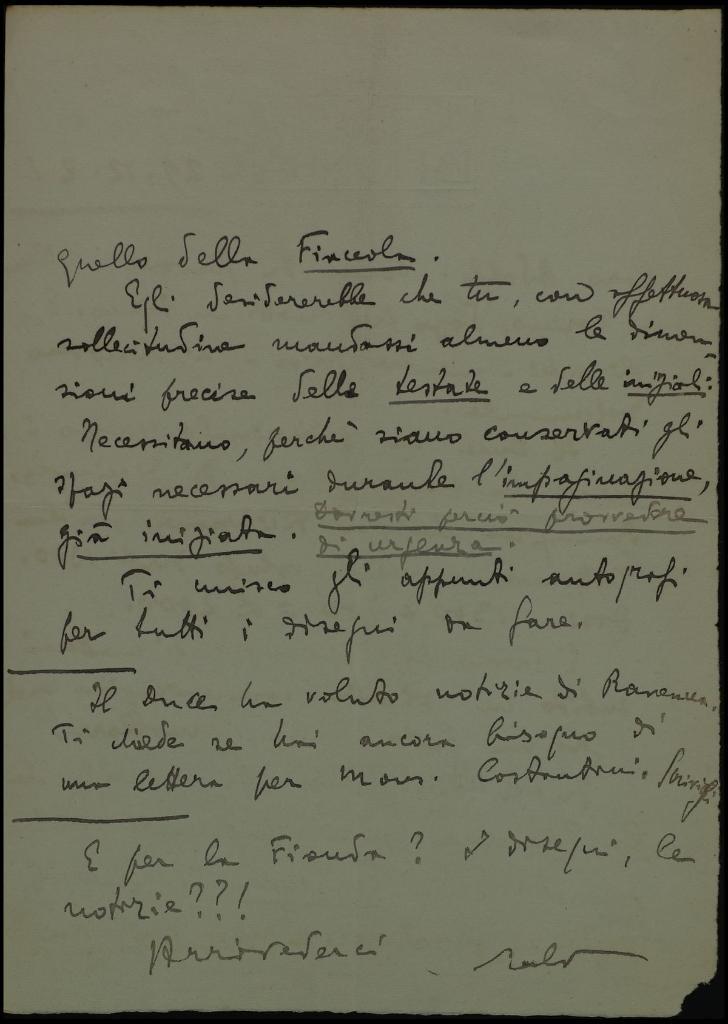 quello della Fiaccola.
Egli desidererebbe che tu, con affettuosa
sollecitudine mandassi almeno le dimen-
sioni precise delle testate e delle iniziali:
Necessitano, perchè siano conservati gli
spazi necessari durante l'impaginazione,
già iniziata. Dovresti perciò provvedere
di urgenza.
Ti unisco gli appunti autografi
per tutti i disegni da fare.
Il Duce ha voluto notizie di Ravenna.
Ti chiede se hai ancora bisogno di
una lettera per Mons. Costantini. Scrivigli
E per la Fionda? I disegni, le
notizie??!
Arrivederci